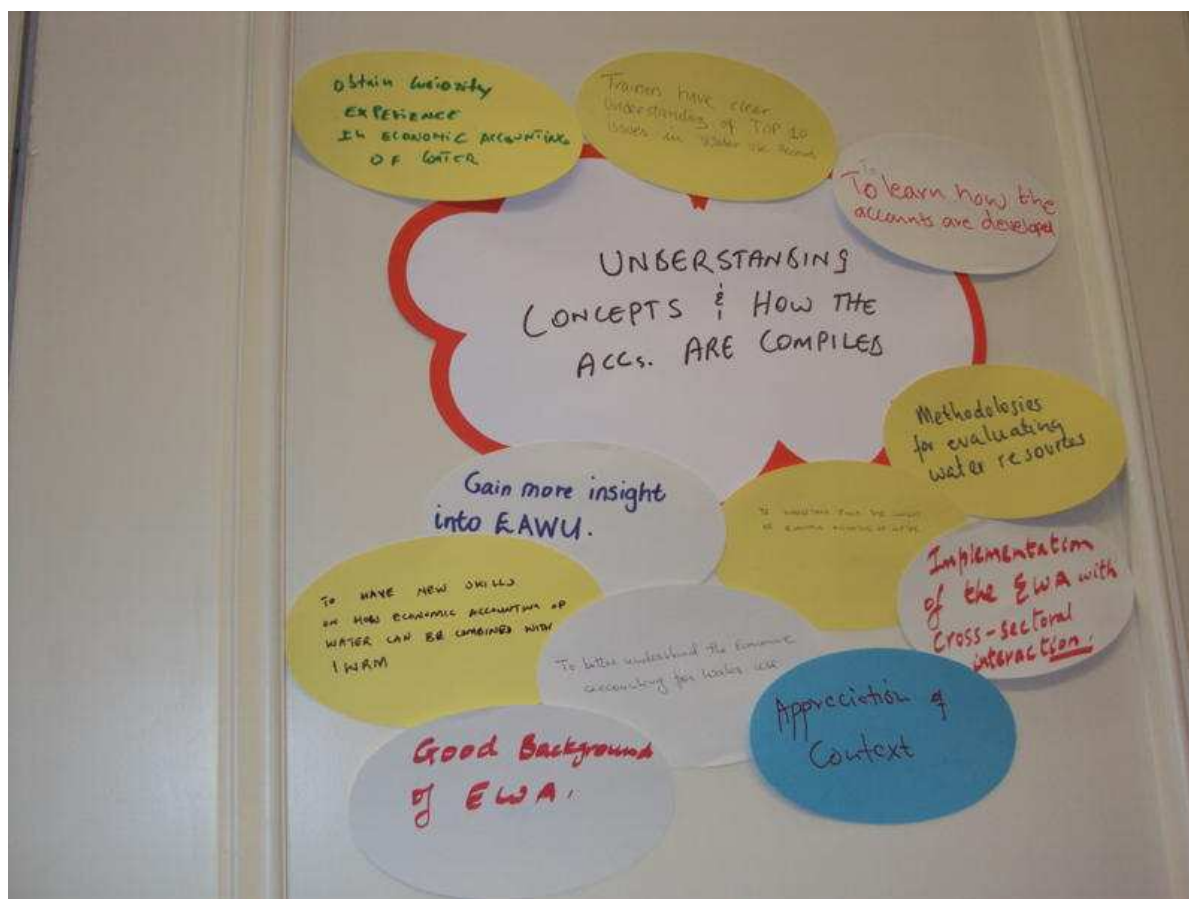 Obtain Curiozity
EXPERIENCE
IN ECONOMIC ACCOUNTING
OF WATER
Trainers have clear
Understanding of TOP 10
issues in Water use
To
To learn how the
accounts are developed
UNDERSTANDING
CONCEPTS & HOW THE
ACCs. ARE COMPILED
Methodologies
for evaluating
water resources
Gain more insight
into EAWU.
Implementation
of the EWA with
cross-sectoral
interaction.
TO HAVE NEW SKILLS
ON HOW ECONOMIC ACCOUNTING OF
WATER CAN BE COMBINED WITH
IWRM
To better understand the Economic
accounting for water use
Appreciation of
Context
Good Background
of EWA.